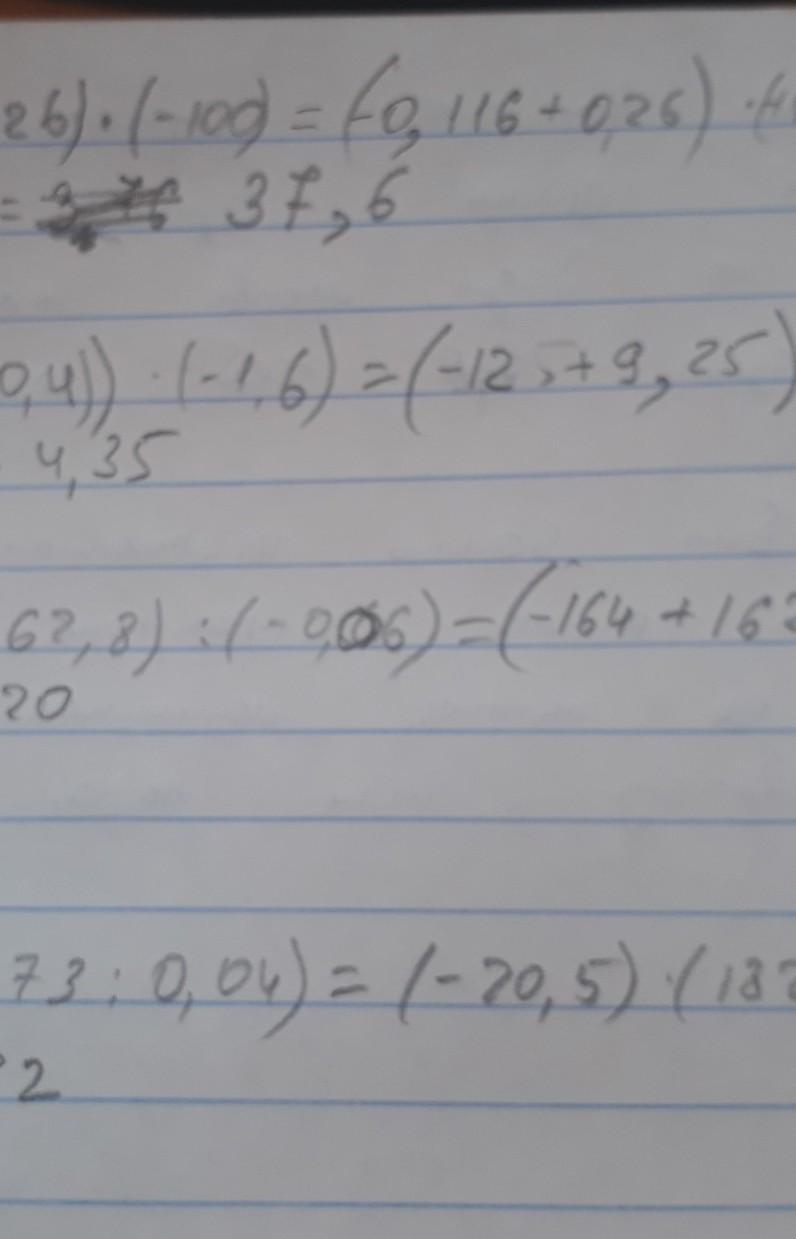 26) · (-100) = (-0,116 + 0,26) ·
= 37,6
0,4)) · (-1,6) = (-12 + 9,25)
4,35
62,8) : (-0,06) = (-164 + 162
20
73 : 0,04) = (-20,5) · (182
2